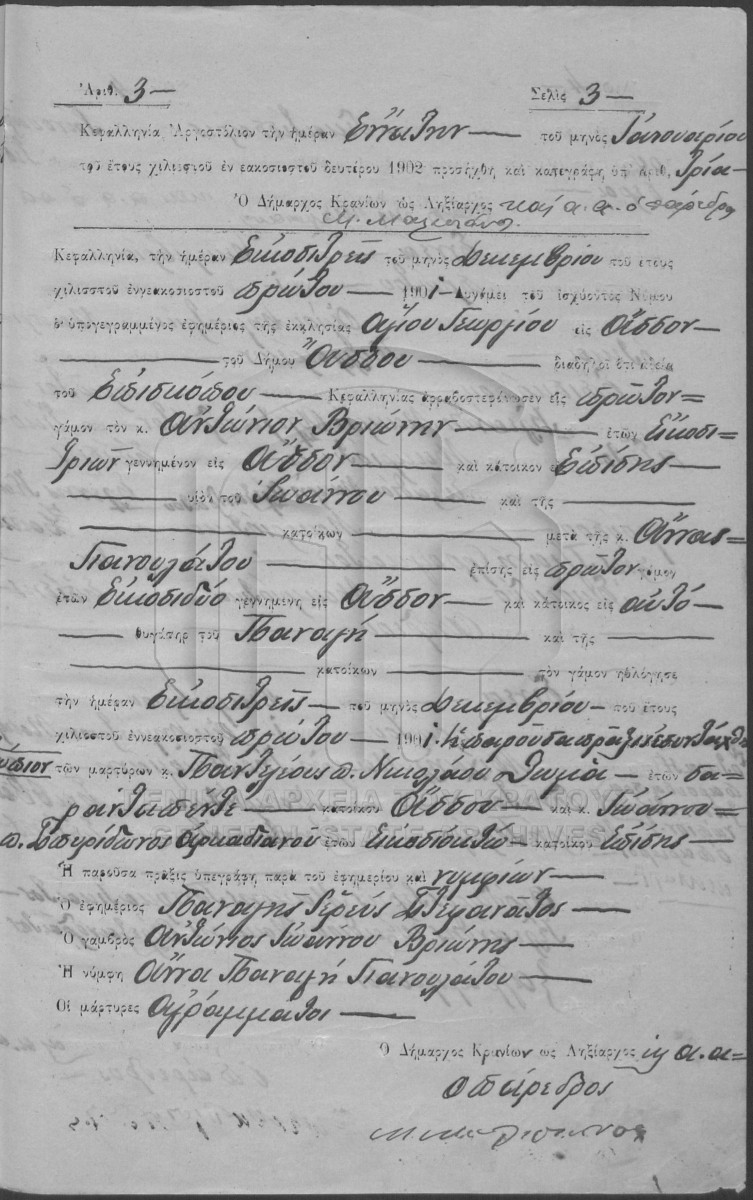 Ἀριθ. 3 — Σελὶς 3 —
Κεφαλληνία Ἀργοστόλιον τὴν ἡμέραν Ἐννάτην — τοῦ μηνὸς Ἰανουαρίου
τοῦ ἔτους χιλιοστοῦ ἐνεακοσιοστοῦ δευτέρου 1902 προσήχθη καὶ κατεγράφη ὑπ' ἀριθ. Τρία —
Ὁ Δήμαρχος Κρανίων ὡς Ληξίαρχος καὶ α. α. ὁ πάρεδρος
Κεφαλληνία, τὴν ἡμέραν Εἰκοσιτρεῖς τοῦ μηνὸς Δεκεμβρίου τοῦ ἔτους
χιλιοστοῦ ἐννεακοσιοστοῦ πρώτου — 1901 — Δυνάμει τοῦ ἰσχύοντος Νόμου
ὁ ὑπογεγραμμένος ἐφημέριος τῆς ἐκκλησίας Ἁγίου Γεωργίου εἰς Ἄσσον —
— τοῦ Δήμου — διαδηλοῖ ὅτι ἀδείᾳ
τοῦ Ἐπισκόπου — Κεφαλληνίας ἀρραβοστεφάνωσεν εἰς πρῶτον =
γάμον τὸν κ. Ἀντώνιον Βριώνην — ἐτῶν Εἴκοσι =
τριῶν γεννημένον εἰς Ἄσσον — καὶ κάτοικον ἐπίσης —
— υἱὸν τοῦ Ἰωάννου — καὶ τῆς —
— κατοίκων — μετὰ τῆς κ. Ἄννας =
Γιανουλάτου — ἐπίσης εἰς πρῶτον γάμον
ἐτῶν Εἰκοσιδύο γεννημένη εἰς Ἄσσον — καὶ κάτοικος εἰς αὐτό —
— θυγάτηρ τοῦ Παναγῆ — καὶ τῆς —
— κατοίκων — τὸν γάμον ηὐλόγησε
τὴν ἡμέραν Εἰκοσιτρεῖς — τοῦ μηνὸς Δεκεμβρίου — τοῦ ἔτους
χιλιοστοῦ ἐννεακοσιοστοῦ πρώτου — 1901. Ἡ παροῦσα πρᾶξις συνετάχθη
ἐνώπιον τῶν μαρτύρων κ. π. Νικολάου — ἐτῶν σα =
ράντα πέντε — κατοίκου Ἄσσου — καὶ κ. Ἰωάννου =
π. Σπυρίδωνος ἐτῶν Εἰκοσιοκτώ — κατοίκου Ἐπίσης —
Ἡ παροῦσα πρᾶξις ὑπεγράφη παρὰ τοῦ ἐφημερίου καὶ νυμφίων —
Ὁ ἐφημέριος Παναγῆς Ἱερεὺς Στεφανάτος —
Ὁ γαμβρὸς Ἀντώνιος Ἰωάννου Βριώνης —
Ἡ νύμφη Ἄννα Παναγῆ Γιανουλάτου —
Οἱ μάρτυρες Ἀγράμματοι —
Ὁ Δήμαρχος Κρανίων ὡς Ληξίαρχος α. α =
ὁ πάρεδρος
ΓΕΝΙΚΑ ΑΡΧΕΙΑ ΤΟΥ ΚΡΑΤΟΥΣ
GENERAL STATE ARCHIVES